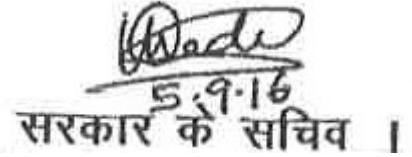 5.9.16
सरकार के सचिव ।